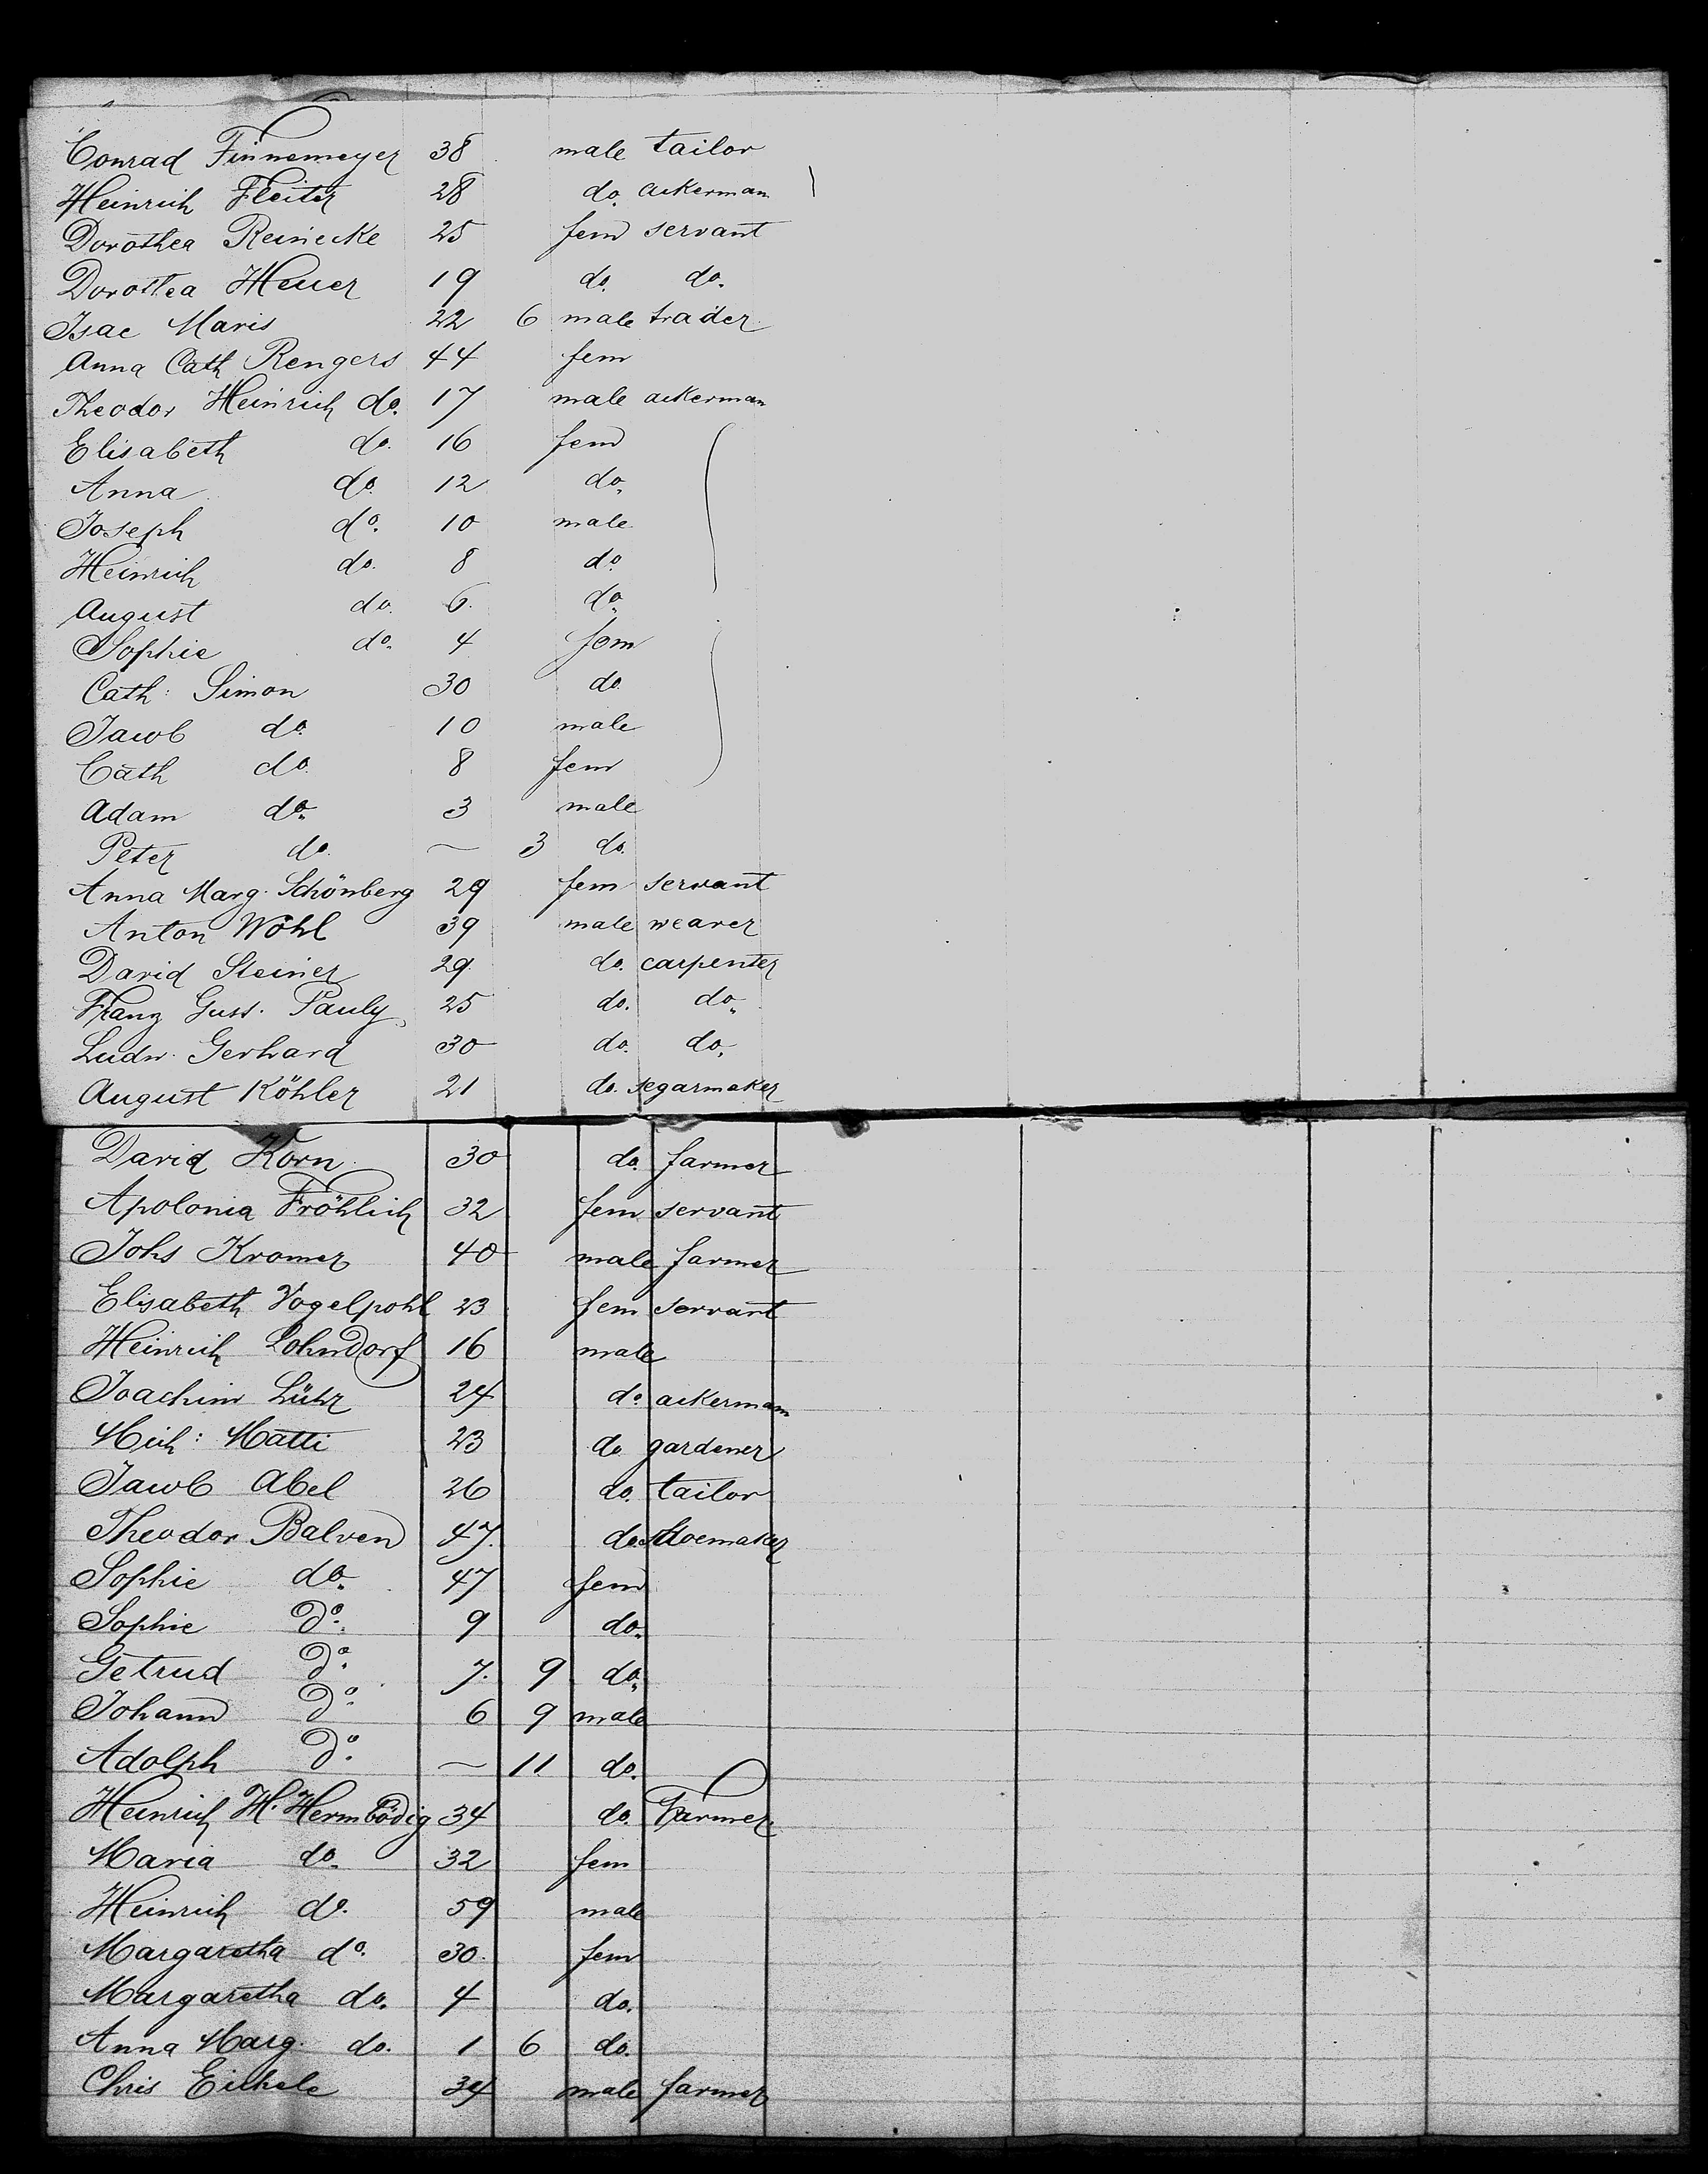 Conrad Finnemeyer 38 male tailor
Heinrich Fleiter 28 do. ackerman
Dorothea Reinecke 25 fem servant
Dorothea Heuer 19 do. do.
Isac Maris 22 6 male trader
Anna Cath Rengers 44 fem
Theodor Heinrich do. 17 male ackerman
Elisabeth do. 16 fem
Anna do. 12 do.
Joseph do. 10 male
Heinrich do. 8 do.
August do. 6. do.
Sophie do. 4 fem
Cath: Simon 30 do.
Jacob do. 10 male
Cath do. 8 fem
Adam do. 3 male
Peter do. — 3 do.
Anna Marg. Schönberg 29 fem servant
Anton Wöhl 39 male weaver
David Steiner 29. do. carpenter
Franz Gust. Pauly 25 do. do.
Ludw. Gerhard 30 do. do.
August Köhler 21 do. segarmaker
David Korn 30 do. farmer
Apolonia Fröhlich 32 fem servant
Johs Kromer 40 male farmer
Elisabeth Vogelpohl 23 fem servant
Heinrich Lohndorf 16 male
Joachim Lühr 24 do. ackerman
Mich: Matti 23 do. gardener
Jacob Abel 26 do. tailor
Theodor Balven 47. do. shoemaker
Sophie do. 47 fem
Sophie do. 9 do.
Getrud do. 7. 9 do.
Johann do. 6 9 male
Adolph do. — 11 do.
Heinrich H. Hermbödig 34 do. Farmer
Maria do. 32 fem
Heinrich do. 59 male
Margaretha do. 30. fem
Margaretha do. 4 do.
Anna Marg. do. 1 6 do.
Chris Eickele 34 male farmer